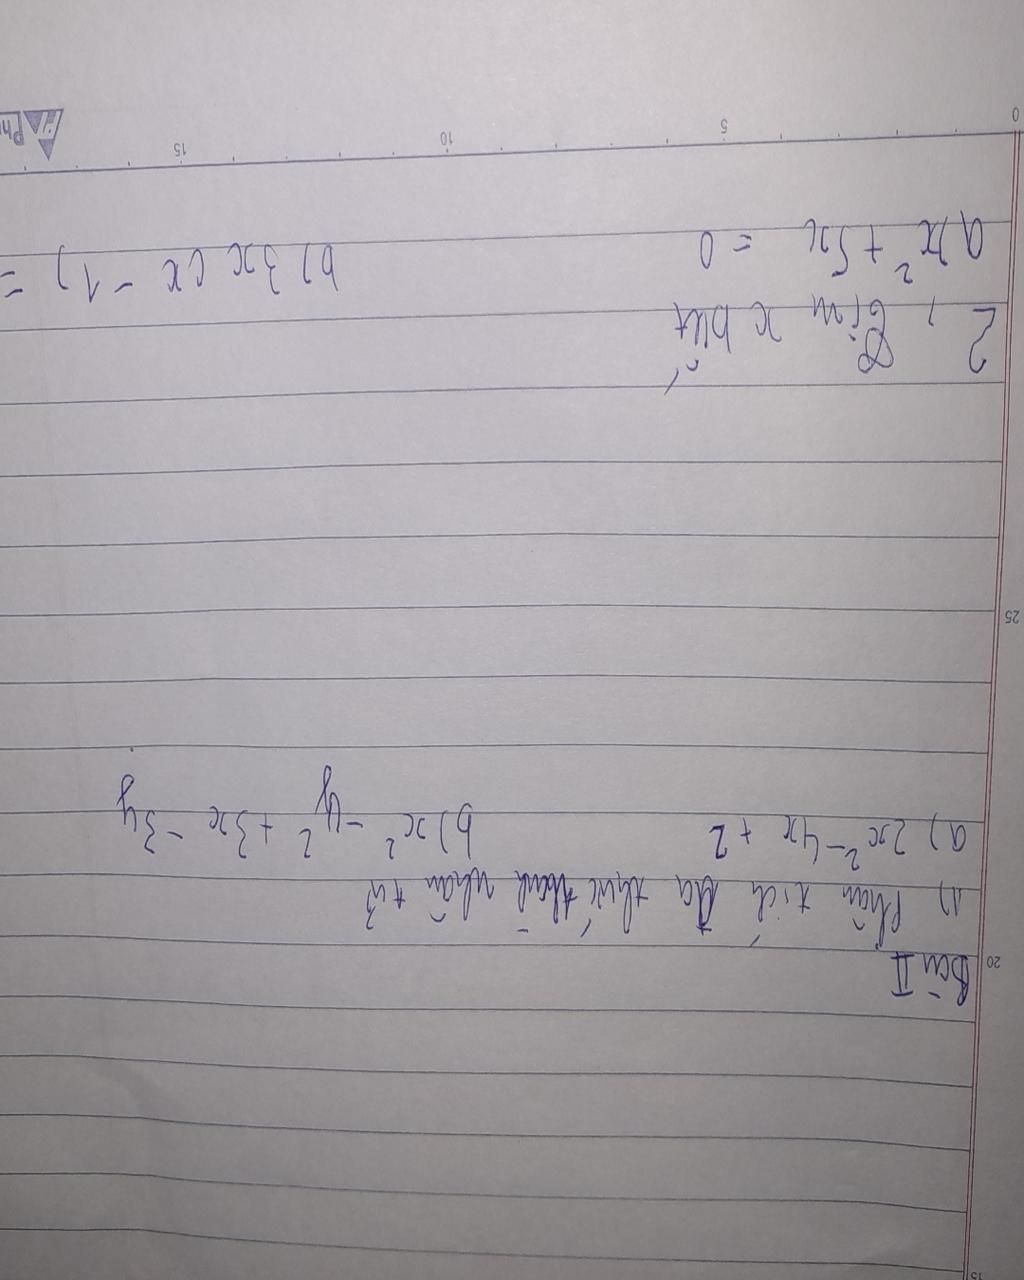 Bài II
1) Phân tích đa thức thành nhân tử
a) 2x² - 4x + 2 b) x² - y² + 3x - 3y
2, Tìm x biết
a, x² + 5x = 0 b) 3x (x - 1) =
0 5 10 15
15
20
25